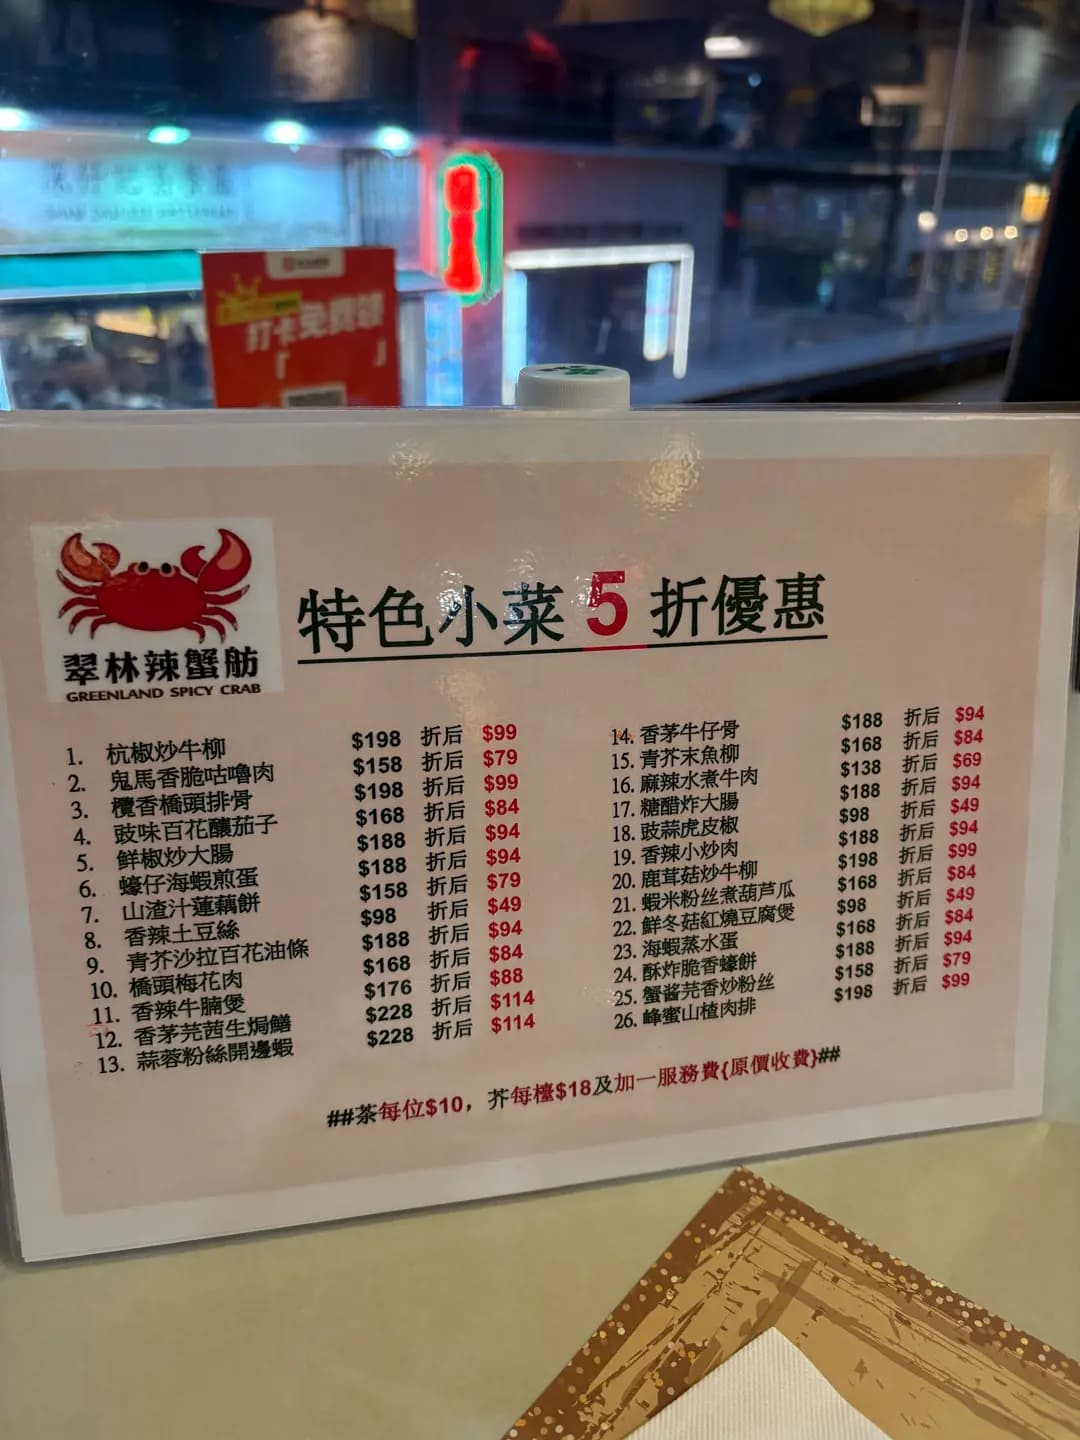 打卡免費
翠林辣蟹舫
GREENLAND SPICY CRAB
特色小菜 5 折優惠
1. 杭椒炒牛柳 $198 折后 $99
2. 鬼馬香脆咕嚕肉 $158 折后 $79
3. 欖香橋頭排骨 $198 折后 $99
4. 豉味百花釀茄子 $168 折后 $84
5. 鲜椒炒大腸 $188 折后 $94
6. 蠔仔海蝦煎蛋 $188 折后 $94
7. 山渣汁蓮藕餅 $158 折后 $79
8. 香辣土豆絲 $98 折后 $49
9. 青芥沙拉百花油條 $188 折后 $94
10. 橋頭梅花肉 $168 折后 $84
11. 香辣牛腩煲 $176 折后 $88
12. 香茅芫茜生焗鱔 $228 折后 $114
13. 蒜蓉粉絲開邊蝦 $228 折后 $114
14. 香茅牛仔骨 $188 折后 $94
15. 青芥末魚柳 $168 折后 $84
16. 麻辣水煮牛肉 $138 折后 $69
17. 糖醋炸大腸 $188 折后 $94
18. 豉蒜虎皮椒 $98 折后 $49
19. 香辣小炒肉 $188 折后 $94
20. 鹿茸菇炒牛柳 $198 折后 $99
21. 蝦米粉丝煮葫芦瓜 $168 折后 $84
22. 鮮冬菇紅燒豆腐煲 $98 折后 $49
23. 海蝦蒸水蛋 $168 折后 $84
24. 酥炸脆香蠔餅 $188 折后 $94
25. 蟹酱芫香炒粉丝 $158 折后 $79
26. 峰蜜山楂肉排 $198 折后 $99
##茶每位$10，芥每檯$18及加一服務費{原價收費}##